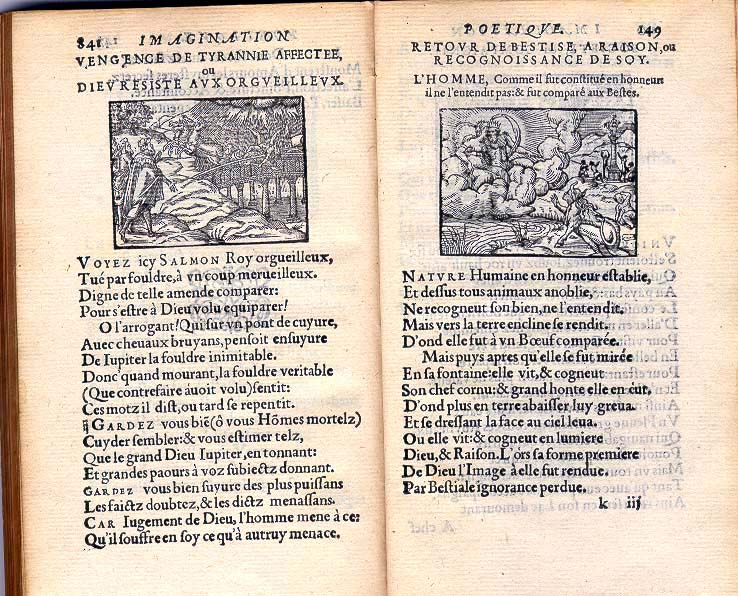 841 IMAGINATION
VENGENCE DE TYRANNIE AFFECTEE,
ou
DIEV RESISTE AVX ORGVEILLEVX.
VOYEZ icy SALMON Roy orgueilleux,
Tué par fouldre, à vn coup merueilleux.
Digne de telle amende comparer:
Pour s'estre à Dieu volu equiparer!
O l'arrogant! Qui sur vn pont de cuyure,
Auec cheuaux bruyans, pensoit ensuyure
De Iupiter la fouldre inimitable.
Donc quand mourant, la fouldre veritable
(Que contrefaire áuoit volu) sentit:
Ces motz il dist, ou tard se repentit.
GARDEZ vous biē (ô vous Hōmes mortelz)
Cuyder sembler: & vous estimer telz,
Que le grand Dieu Iupiter, en tonnant:
Et grandes paours à voz subiectz donnant.
GARDEZ vous bien suyure des plus puissans
Les faictz doubtez, & les dictz menassans.
CAR Iugement de Dieu, l'homme mene à ce:
Qu'il souffre en soy ce qu'à autruy menace.
POETIQVE. 149
RETOVR DE BESTISE, A RAISON, ou
RECOGNOISSANCE DE SOY.
L'HOMME, Comme il fut constitué en honneur:
il ne l'entendit pas: & fut comparé aux Bestes.
NATVRE Humaine en honneur establie,
Et dessus tous animaux anoblie,
Ne recogneut son bien, ne l'entendit.
Mais vers la terre encline se rendit.
D'ond elle fut à vn Bœuf comparée.
Mais puys apres qu'elle se fut mirée
En sa fontaine: elle vit, & cogneut
Son chef cornu: & grand honte elle en eut,
D'ond plus en terre abaisser luy greua.
Et se dressant la face au ciel leua.
Ou elle vit: & cogneut en lumiere
Dieu, & Raison. L'ors sa forme premiere
De Dieu l'Image à elle fut rendue.
Par Bestiale ignorance perdue.
k iij